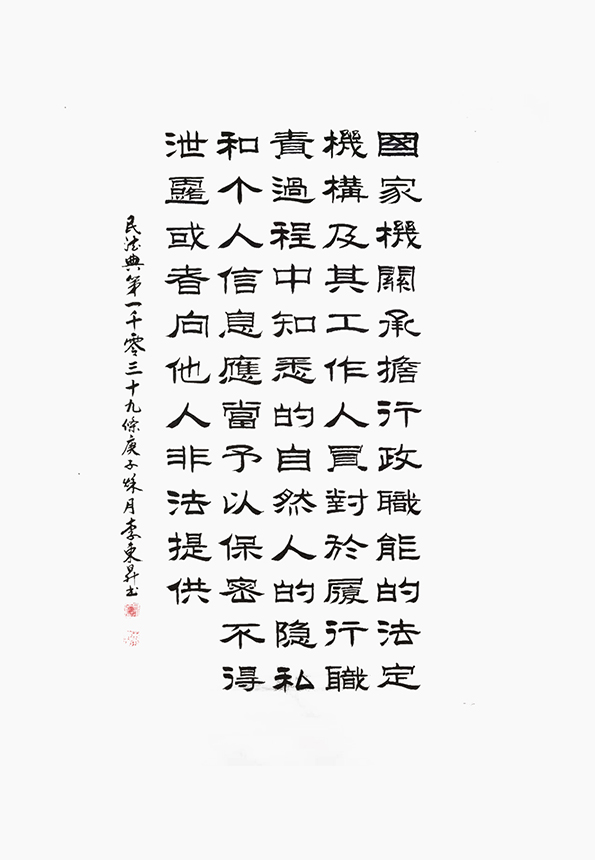 國家機關承擔行政職能的法定
機構及其工作人員對於履行職
責過程中知悉的自然人的隐私
和个人信息應當予以保密不得
泄露或者向他人非法提供
民法典第一千零三十九條庚子秌月李東昇书